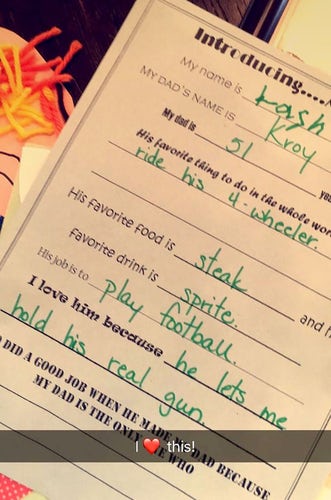 Introducing.....
My name is Kash
MY DAD'S NAME IS Kroy
My dad is 51
His favorite thing to do in the whole
ride his 4-wheeler.
His favorite food is steak
favorite drink is sprite. and
His job is to play football.
I love him because he lets me
hold his real gun.
DID A GOOD JOB WHEN HE MADE DAD BECAUSE
MY DAD IS THE ONLY WHO
I ❤️ this!